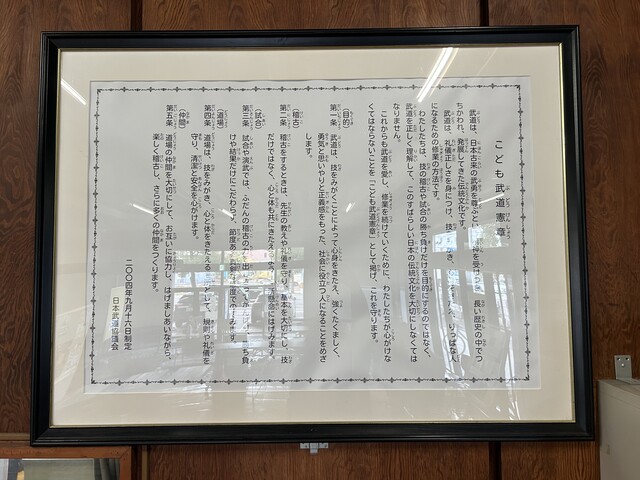 こども武道憲章
武道は、日本古来の武勇を尊ぶと 神を受けつぎ、長い歴史の中でつ
ちかわれ、発展してきた伝統文化です。
武道は、礼儀正しさを身につけ、技 かき、心 りっぱな人
になるための修業の方法です。
わたしたちは、技の稽古や試合の勝ち負けだけを目的にするのではなく、
武道を正しく理解して、このすばらしい日本の伝統文化を大切にしなくては
なりません。
これからも武道を愛し、修業を続けていくために、わたしたちが心がけな
くてはならないことを「こども武道憲章」として掲げ、これを守ります。
(目的)
第一条 武道は、技をみがくことによって心身をきたえ、強くたくましく、
勇気と思いやりと正義感をもった、社会に役立つ人になることをめざ
します。
(稽古)
第二条 稽古をするときは、先生の教えや礼儀を守り、基本を大切にし、技
だけではなく、心と体も共にきたえるよう 懸命にはげみます。
(試合)
第三条 試合や演武では、ふだんの稽古の 出 ち負
けや結果だけにこだわらず、節度ある 度で みます。
(道場)
第四条 道場は、技をみがき、心と体をきたえる 規則や礼儀を
守り、清潔と安全を心がけます。
(仲間)
第五条 道場の仲間を大切にして、お互いに協力し、はげましあいながら、
楽しく稽古し、さらに多くの仲間をつくります。
二〇〇四年九月十六日制定
日本武道協議会